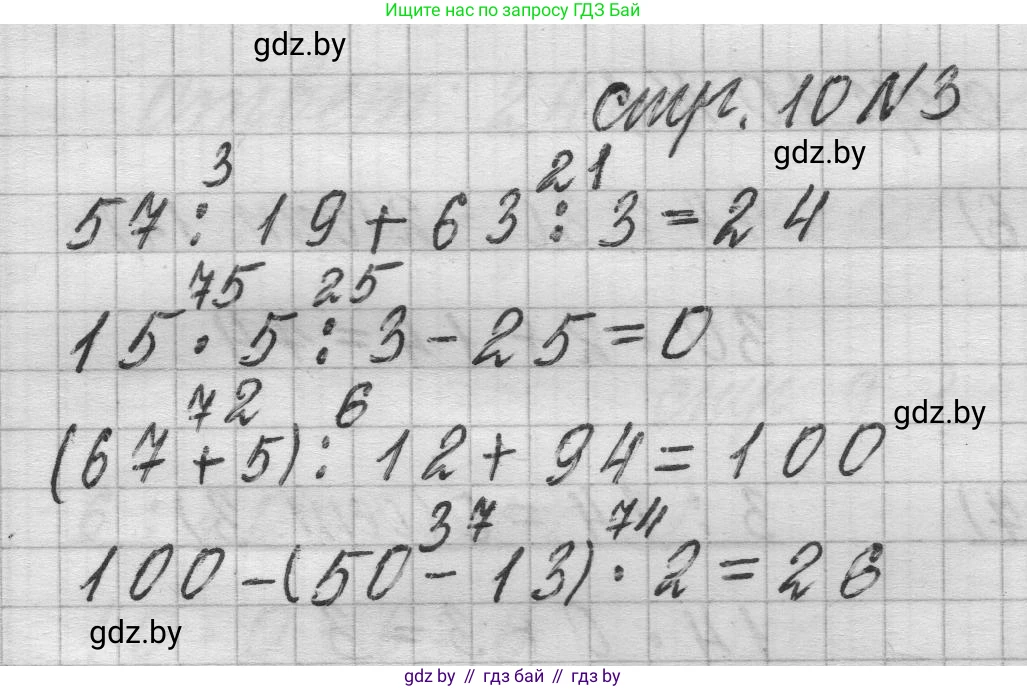 Ищите нас по запросу ГДЗ Бай
gdz.by
стр. 10 N 3
gdz.by
3 21
57 : 19 + 63 : 3 = 24
75 25
15 · 5 : 3 - 25 = 0
72 6
gdz.by
(67 + 5) : 12 + 94 = 100
37 74
100 - (50 - 13) · 2 = 26
gdz.by
gdz.by // гдз бай // gdz by